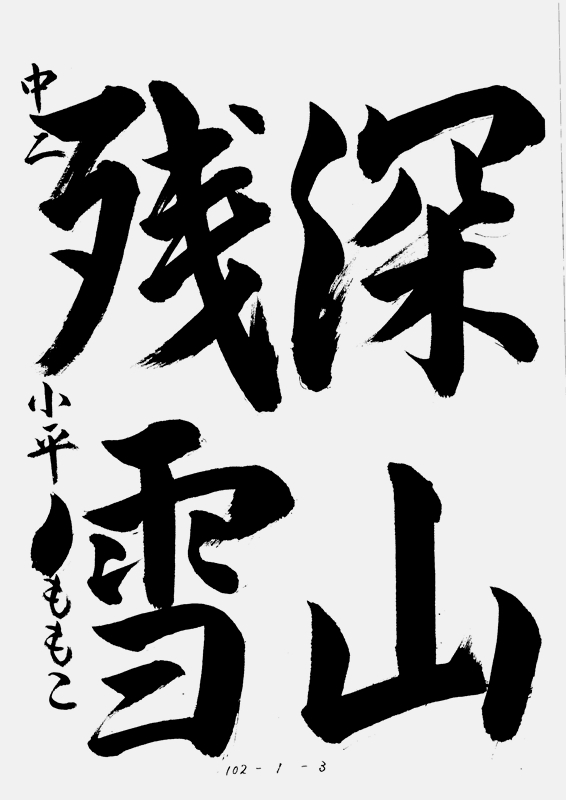 深山
残雪
中二 小平 ももこ
102-1-3